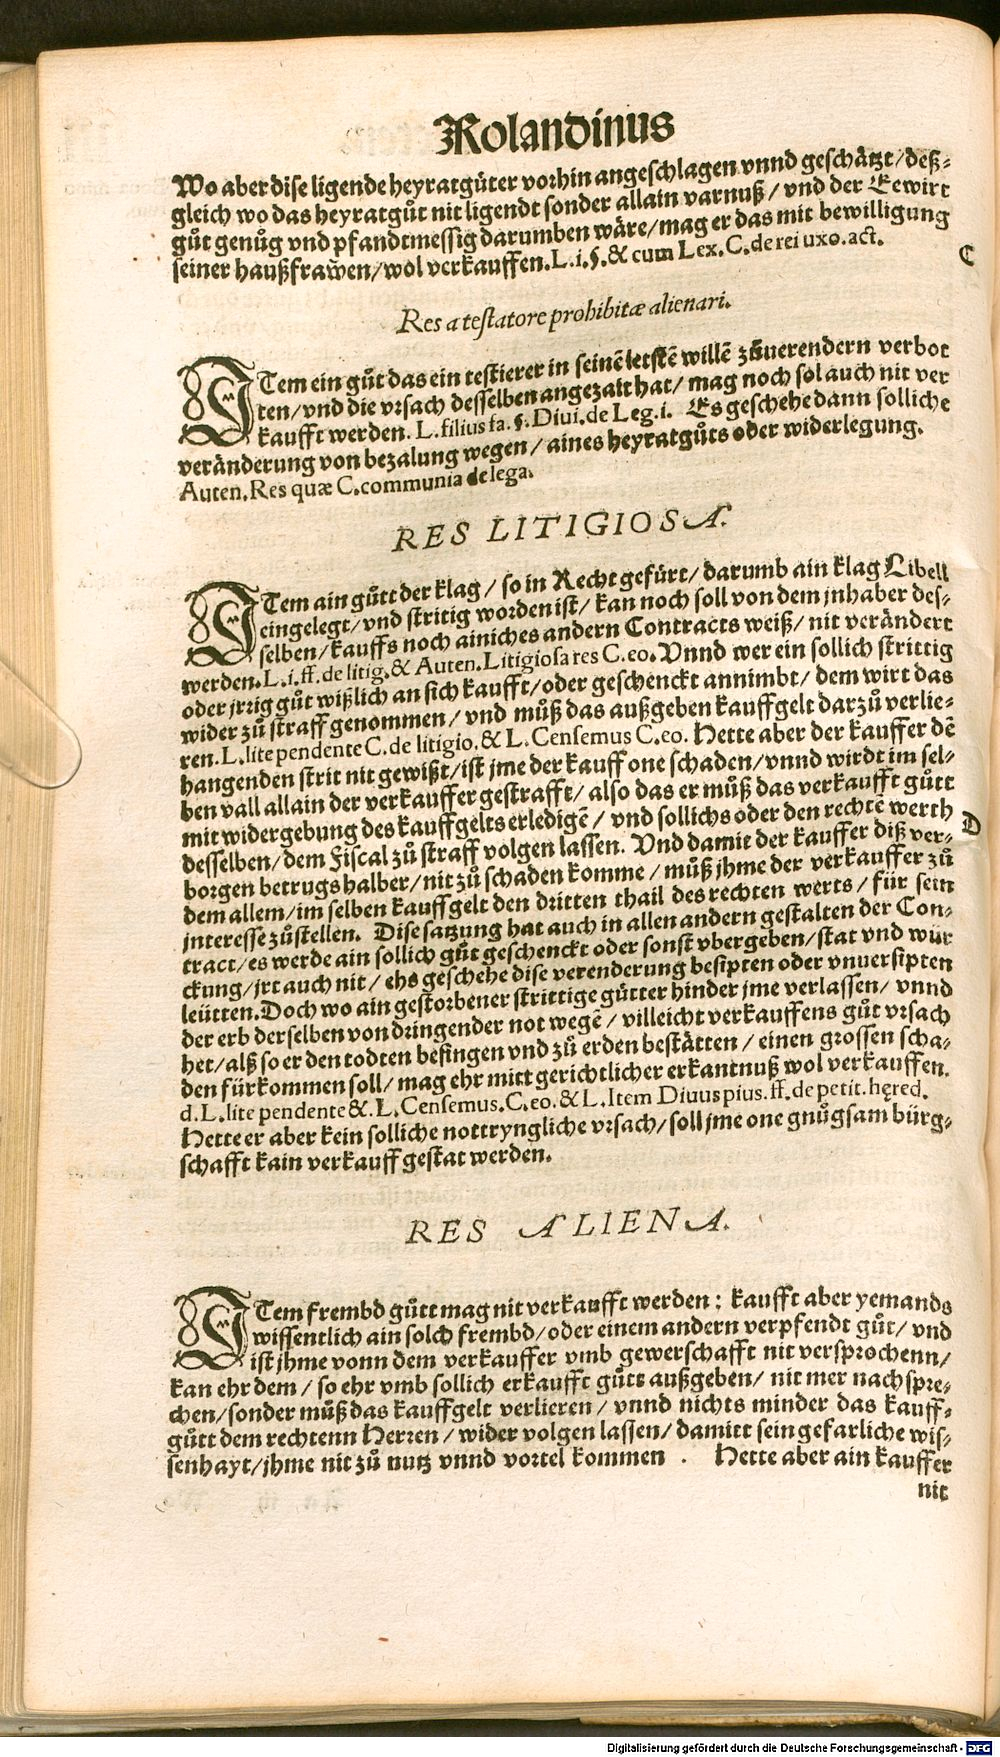 Rolandinus
Wo aber dise ligende heyratgüter vorhin angeschlagen vnnd geschätzt/deß-
gleich wo das heyratgůt nit ligendt sonder allain varnuß/vnd der Eewirt
gůt genůg vnd pfandtmessig darumben wäre/mag er das mit bewilligung
seiner haußfrawen/wol verkauffen. L.i.§.& cum Lex.C.de rei uxo.act.
C
Res a testatore prohibitæ alienari.
ITem ein gůt das ein testierer in seinē letstē willē zůuerendern verbot
ten/vnd die vrsach desselben angezait hat/mag noch sol auch nit ver
kaufft werden. L.filius fa.§.Diui.de Leg.i. Es geschehe dann solliche
veränderung von bezalung wegen/aines heyratgůts oder widerlegung.
Auten.Res quæ C.communia de lega.
RES LITIGIOSA.
ITem ain gůtt der klag/so in Recht gefürt/darumb ain klag Libell
eingelegt/vnd stritig worden ist/kan noch soll von dem jnhaber des-
selben/kauffs noch ainiches andern Contracts weiß/nit verändert
werden. L.i.ff.de litig.& Auten.Litigiosa res C.eo. Vnnd wer ein sollich strittig
oder jrrig gůt wißlich an sich kaufft/oder geschenckt annimbt/dem wirt das
wider zů straff genommen/vnd můß das außgeben kauffgelt darzů verlie-
ren. L.lite pendente C.de litigio.& L.Censemus C.eo. Hette aber der kauffer dē
hangenden strit nit gewißt/ist jme der kauff one schaden/vnnd wirdt im sel-
ben vall allain der verkauffer gestrafft/also das er můß das verkaufft gůtt
mit widergebung des kauffgelts erledigē/vnd sollichs oder den rechtē werth
D
desselben/dem Fiscal zů straff volgen lassen. Vnd damit der kauffer diß ver-
borgen betrugs halber/nit zů schaden komme/můß jhme der verkauffer zů
dem allem/im selben kauffgelt den dritten thail des rechten werts/für sein
jnteresse zůstellen. Dise satzung hat auch in allen andern gestalten der Con-
tract/es werde ain sollich gůt geschenckt oder sonst vbergeben/stat vnd wür
ckung/jrt auch nit/ehs geschehe dise verenderung besipten oder vnuersipten
leütten. Doch wo ain gestorbener strittige gütter hinder jme verlassen/vnnd
der erb derselben von dringender not wegē/villeicht verkauffens gůt vrsach
het/alß so er den todten besingen vnd zů erden bestätten/einen grossen scha-
den fürkommen soll/mag ehr mitt gerichtlicher erkantnuß wol verkauffen.
d.L.lite pendente &.L.Censemus.C.eo.& L.Item Diuus pius.ff.de petit.hęred.
Hette er aber kein solliche nottryngliche vrsach/soll jme one gnůgsam bürg-
schafft kain verkauff gestat werden.
RES ALIENA.
ITem frembd gůtt mag nit verkaufft werden: kaufft aber yemands
wissentlich ain solch frembd/oder einem andern verpfendt gůt/vnd
ist jhme vonn dem verkauffer vmb gewerschafft nit versprochenn/
kan ehr dem/so ehr vmb sollich erkaufft gůts außgeben/nit mer nachspre-
chen/sonder můß das kauffgelt verlieren/vnnd nichts minder das kauff-
gůtt dem rechtenn Herren/wider volgen lassen/damitt sein gefarliche wis-
senhayt/jhme nit zů nutz vnnd vortel kommen . Hette aber ain kauffer
nit
Digitalisierung gefördert durch die Deutsche Forschungsgemeinschaft - DFG